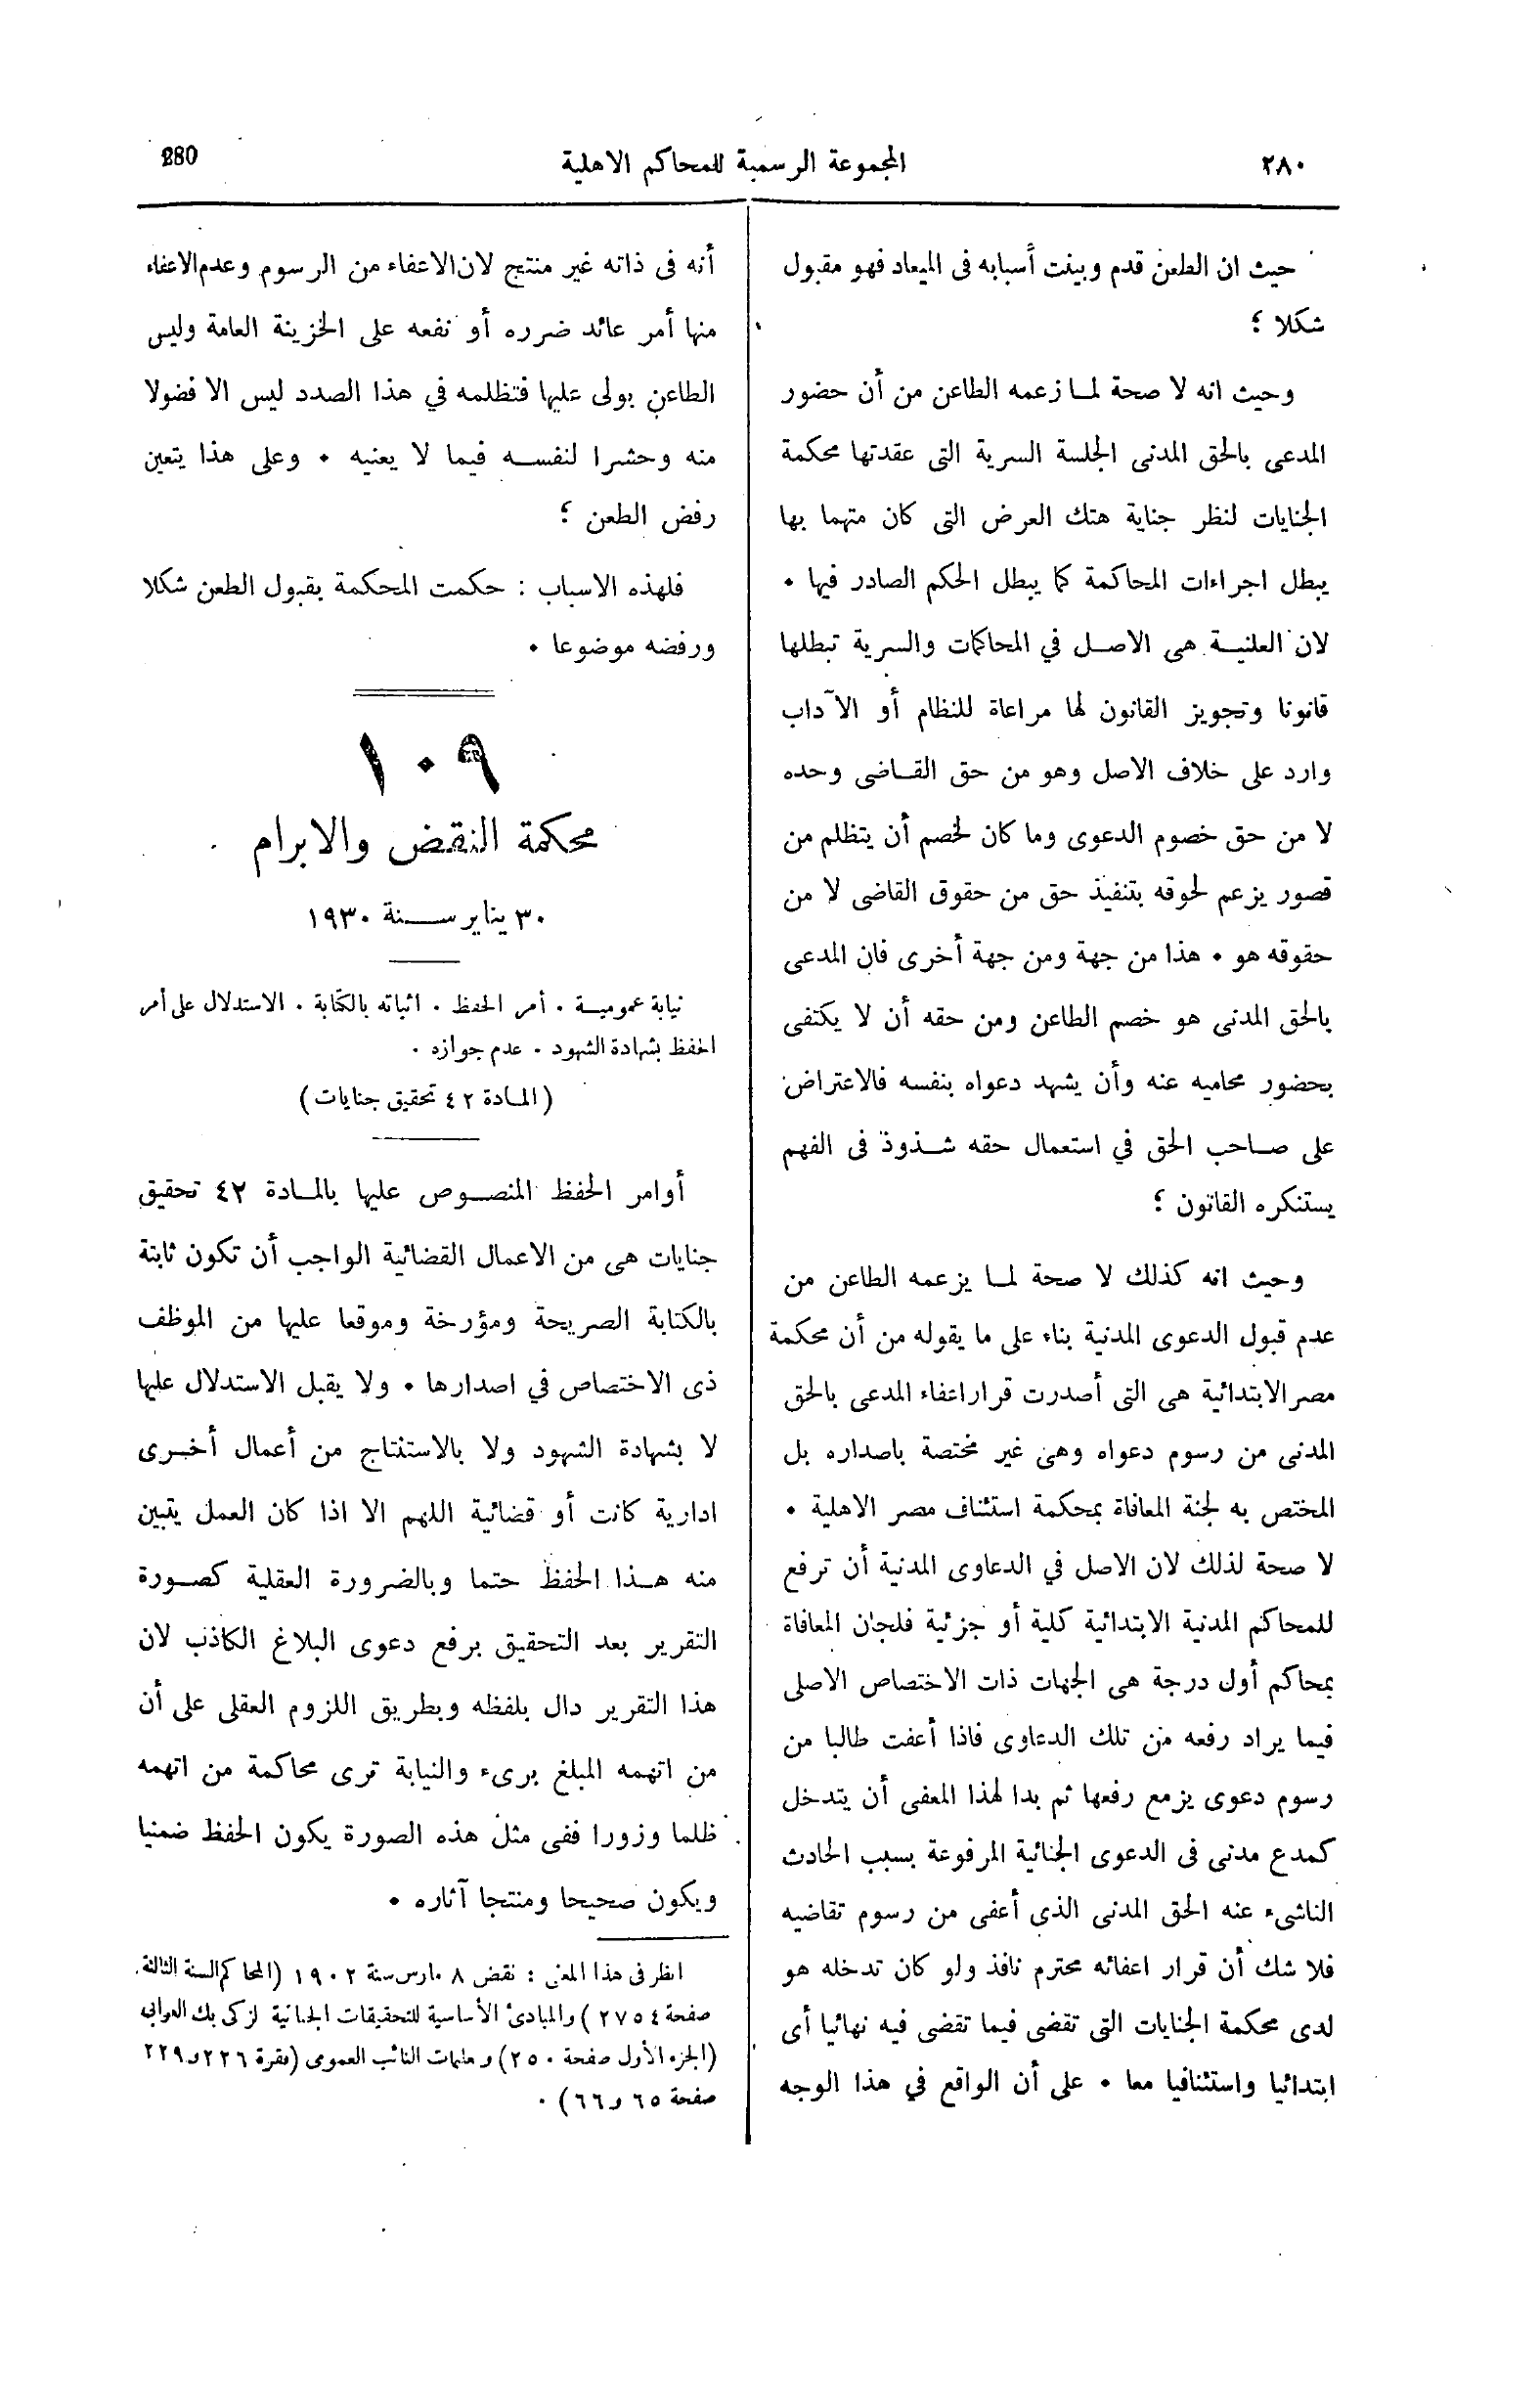 ٢٨٠
المجموعة الرسمية للمحاكم الاهلية
280
حيث ان الطعن قدم وبينت أسبابه فى الميعاد فهو مقبول
شكلا ؛
وحيث انه لا صحة لما زعمه الطاعن من أن حضور
المدعى بالحق المدنى الجلسة السرية التى عقدتها محكمة
الجنايات لنظر جناية هتك العرض التى كان متهما بها
يبطل اجراءات المحاكمة كما يبطل الحكم الصادر فيها ٠
لان العلنية هى الاصل في المحاكمات والسرية تبطلها
قانونا وتجويز القانون لها مراعاة للنظام أو الآداب
وارد على خلاف الاصل وهو من حق القاضى وحده
لا من حق خصوم الدعوى وما كان لخصم أن يتظلم من
قصور يزعم لحوقه بتنفيذ حق من حقوق القاضى لا من
حقوقه هو ٠ هذا من جهة ومن جهة أخرى فان المدعى
بالحق المدنى هو خصم الطاعن ومن حقه أن لا يكتفى
بحضور محاميه عنه وأن يشهد دعواه بنفسه فالاعتراض
على صاحب الحق في استعمال حقه شذوذ فى الفهم
يستنكره القانون ؛
وحيث انه كذلك لا صحة لما يزعمه الطاعن من
عدم قبول الدعوى المدنية بناء على ما يقوله من أن محكمة
مصر الابتدائية هى التى أصدرت قرار اعفاء المدعى بالحق
المدنى من رسوم دعواه وهى غير مختصة باصداره بل
المختص به لجنة المعافاة بمحكمة استئناف مصر الاهلية ٠
لا صحة لذلك لان الاصل في الدعاوى المدنية أن ترفع
للمحاكم المدنية الابتدائية كلية أو جزئية فلجان المعافاة
بمحاكم أول درجة هى الجهات ذات الاختصاص الاصلى
فيما يراد رفعه من تلك الدعاوى فاذا أعفت طالبا من
رسوم دعوى يزمع رفعها ثم بدا لهذا المعفى أن يتدخل
كمدع مدنى فى الدعوى الجنائية المرفوعة بسبب الحادث
الناشىء عنه الحق المدنى الذي أعفى من رسوم تقاضيه
فلا شك أن قرار اعفائه محترم نافذ ولو كان تدخله هو
لدى محكمة الجنايات التى تقضى فيما تقضى فيه نهائيا أى
ابتدائيا واستئنافيا معا ٠ على أن الواقع في هذا الوجه
أنه فى ذاته غير منتج لان الاعفاء من الرسوم وعدم الاعفاء
منها أمر عائد ضرره أو نفعه على الخزينة العامة وليس
الطاعن بولى عليها فتظلمه في هذا الصدد ليس الا فضولا
منه وحشرا لنفسه فيما لا يعنيه ٠ وعلى هذا يتعين
رفض الطعن ؛
فلهذه الاسباب : حكمت المحكمة بقبول الطعن شكلا
ورفضه موضوعا ٠
١٠٩
محكمة النقض والابرام
٣٠ يناير سنة ١٩٣٠
نيابة عمومية ٠ أمر الحفظ ٠ اثباته بالكتابة ٠ الاستدلال على أمر
الحفظ بشهادة الشهود ٠ عدم جوازه ٠
(المادة ٤٢ تحقيق جنايات)
أوامر الحفظ المنصوص عليها بالمادة ٤٢ تحقيق
جنايات هى من الاعمال القضائية الواجب أن تكون ثابتة
بالكتابة الصريحة ومؤرخة وموقعا عليها من الموظف
ذى الاختصاص في اصدارها ٠ ولا يقبل الاستدلال عليها
لا بشهادة الشهود ولا بالاستنتاج من أعمال أخرى
ادارية كانت أو قضائية اللهم الا اذا كان العمل يتبين
منه هذا الحفظ حتما وبالضرورة العقلية كصورة
التقرير بعد التحقيق برفع دعوى البلاغ الكاذب لان
هذا التقرير دال بلفظه وبطريق اللزوم العقلى على أن
من اتهمه المبلغ برىء والنيابة ترى محاكمة من اتهمه
ظلما وزورا ففى مثل هذه الصورة يكون الحفظ ضمنيا
ويكون صحيحا ومنتجا آثاره ٠
انظر فى هذا المعنى : نقض ٨ مارس سنة ١٩٠٢ (المحاكم السنة الثالثة
صفحة ٢٧٥٤) والمبادئ الأساسية للتحقيقات الجنائية لزكى بك العرابى
(الجزء الأول صفحة ٢٥٠) وتعليمات النائب العمومى (فقرة ٢٢٦ و ٢٢٩
صفحة ٦٥ و ٦٦) ٠